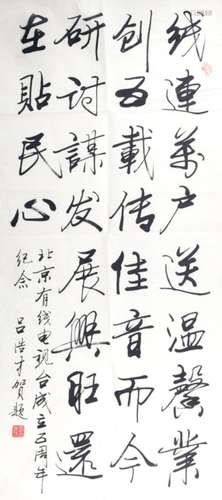 线連萬户送温馨業
创五載传佳音而今
研討謀发展興旺還
在貼民心
北京有线电视台成立五周年
纪念 吕浩才贺题